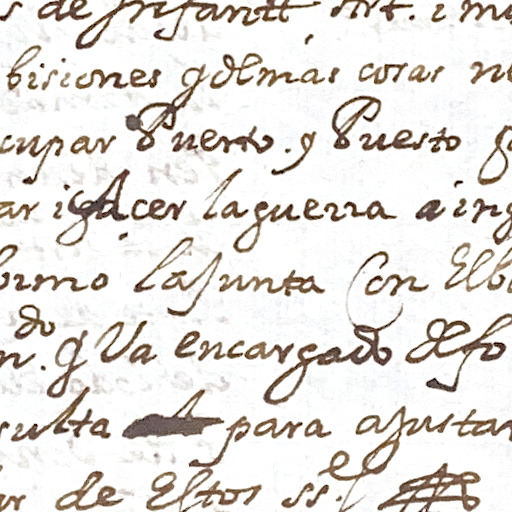 s de Infantt Art. i mu
bisiones q demas cosas ne
cupar Puerto. y Puesto q
ar i hacer laguerra a ing
bimo la Junta Con Elba
n.do q Va encargado de fo
sulta para ajustar
ar de Estos ss.es